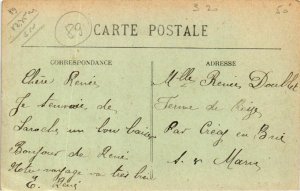 89
CARTE POSTALE
3 2
CORRESPONDANCE
ADRESSE
Chère Renée
Je t'envoie de
Laroche un bon baiser
Bonjour de René
Votre voyage a très bien
E. René
Mlle Renée Doublet
Ferme de
Par Crécy en Brie
S. et Marne